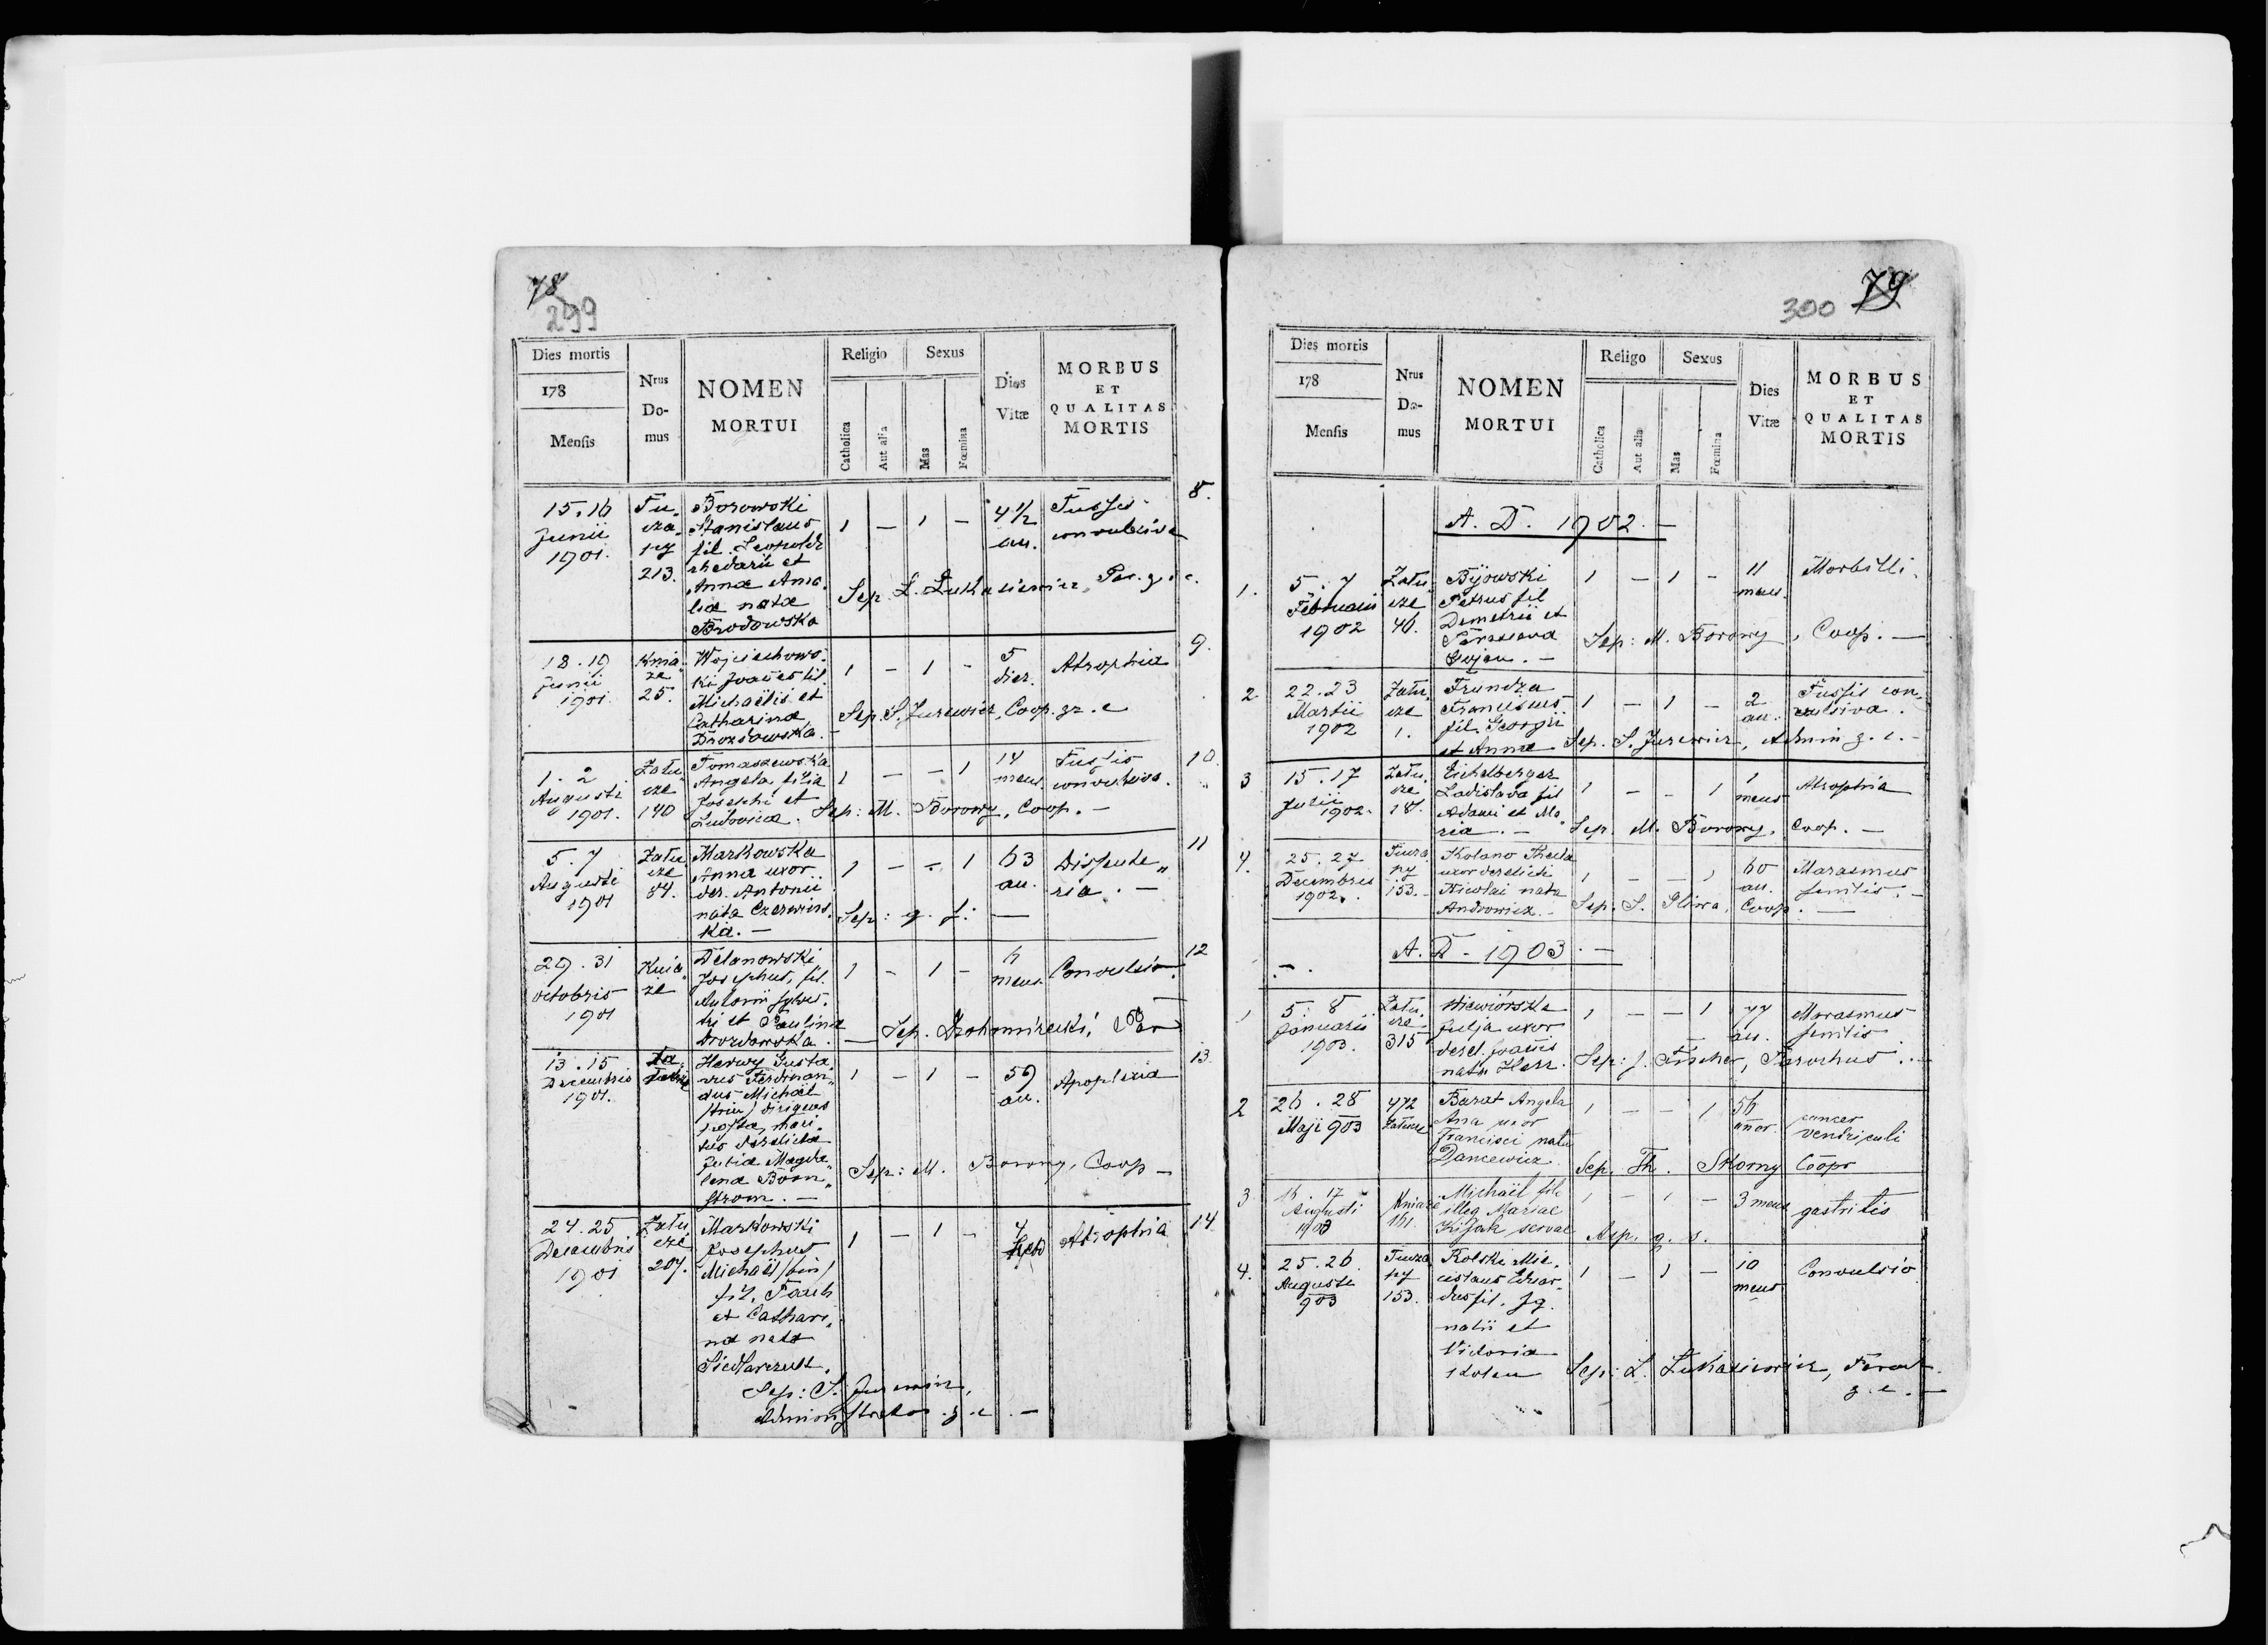 78
299
Dies mortis
178
Mensis
Nrus
Do-
mus
NOMEN
MORTUI
Religio
Catholica
Aut alia
Sexus
Mas
Fœmina
Dies
Vitæ
MORBUS
ET
QUALITAS
MORTIS
15.16
Junii
1901.
Tu
cza
py
213.
Borowski
Stanislaus
fil. Leopoldi
rhedarii et
Anna Ama
lia nata
Brodowska
1 — 1 —
4 1/2
an.
Tussis
convulsiva
8.
Sep. L. Lukasiewicz, Par. g. c.
18.19
Junii
1901.
Knia
ze
25.
Wojciechows
ki Joañes fil.
Michaëlis et
Catharina
Drozdowska.
1 — 1 -
5
dier.
Atrophia
9.
Sep. S. Jurewicz, Coop. gr. c
1. 2
Augusti
1901.
Zału
cze
140
Tomaszewska
Angela filia
Josephi et
Ludovica.
1 — — 1
14
mens.
Tussis
convulsiva.
10.
Sep: M. Borowy, Coop. —
5. 7
Augusti
1901
Zału
cze
84.
Markowska
Anna uxor
der. Antonii
nata Czerwins
ka. —
1 — — 1
63
an.
Dispute
ria. —
11
Sep: q. f: —
29. 31
Octobris
1901
Knia
ze
Delanowski
Josephus, fil.
Antonii sylves.
tri et Paulina
Drozdowska.
1 - 1 -
6
mens.
Convulsio.
12
— Sep.
13. 15
Decembris
1901.
Herwy Gusta
vus Ferdinan
dus Michaël
(trin) dirigens
posta, mari
tus derelicta
Julia Magda
lena Born
strom. —
1 - 1 -
59
an.
Apoplexia
13.
Sep: M. Borowy, Coop —
24. 25
Decembris
1901
Zału
cze
207.
Markowski
Josephus
Michaël (bin)
fil. Pauli
et Cathari
na nata
Siedlarczuk.
1 - 1 -
4
Atrophia
14.
Sep: S. Jurewicz,
Administrator g. c. —
300
79
Dies mortis
178
Mensis
Nrus
Do-
mus
NOMEN
MORTUI
Religo
Catholica
Aut alia
Sexus
Mas
Fœmina
Dies
Vitæ
MORBUS
ET
QUALITAS
MORTIS
A. D. 1902. —
1.
5. 7
Februarii
1902
Zału
cze
46.
Byowski
Petrus fil
Demetrii et
Parasceva
Gujan. —
1 — 1 -
11
mens.
Morbilli.
Sep: M. Borowy, Coop. —
2.
22. 23
Martii
1902
Zału
cze
1.
Trundza
Franciscus
fil. Georgii
et Anna
1 — 1 —
2
an.
Tussis con
vulsiva.
Sep. S. Jurewicz, Admin g. c. -
3
15. 17
Julii
1902.
Zału
cze
187.
Eichelberger
Ladislava fil
Adami et Ma
ria. —
1 — - 1
1
mens
Atrophia
Sep. M. Borowy, Coop. —
4.
25. 27
Decembris
1902.
Tucza
py
153.
Kolano Thecla
uxor derelicti
Nicolai nata
Androwicz. -
1 — — 1
60
an.
Marasmus
senilis. -
Sep. S. Sliwa, Coop. —
A. D. 1903. —
1
5. 8
Januarii
1903.
Zału
cze
315
Wiewiórska
Julja uxor
derel. Joañis
nata Herz.
1 — — 1
77
an.
Marasmus
senilis
Sep: J. Fischer, Parochus. —
2
26. 28
Maji 903
472
Załucze
Barat Angela
Ana uxor
Francisci nata
Dancewicz
1 — - 1
56
anor.
cancer
ventriculi
Sep. Th. Skorny Coopr
3
16. 17
Augusti
1903
Kniaze
161.
Michaël fil
illeg Mariae
Kijak servae
1 - 1 -
3 mens
gastritis
Sep. q. s.
4.
25. 26
Augusti
903
Tucza
py
153.
Rolski Mie
cislaus Eduar
dus fil. Ig
natii et
Victoria
1 — 1 —
10
mens
Convulsio
Sep: L. Lukasiewicz, Paroch.
g. c. —